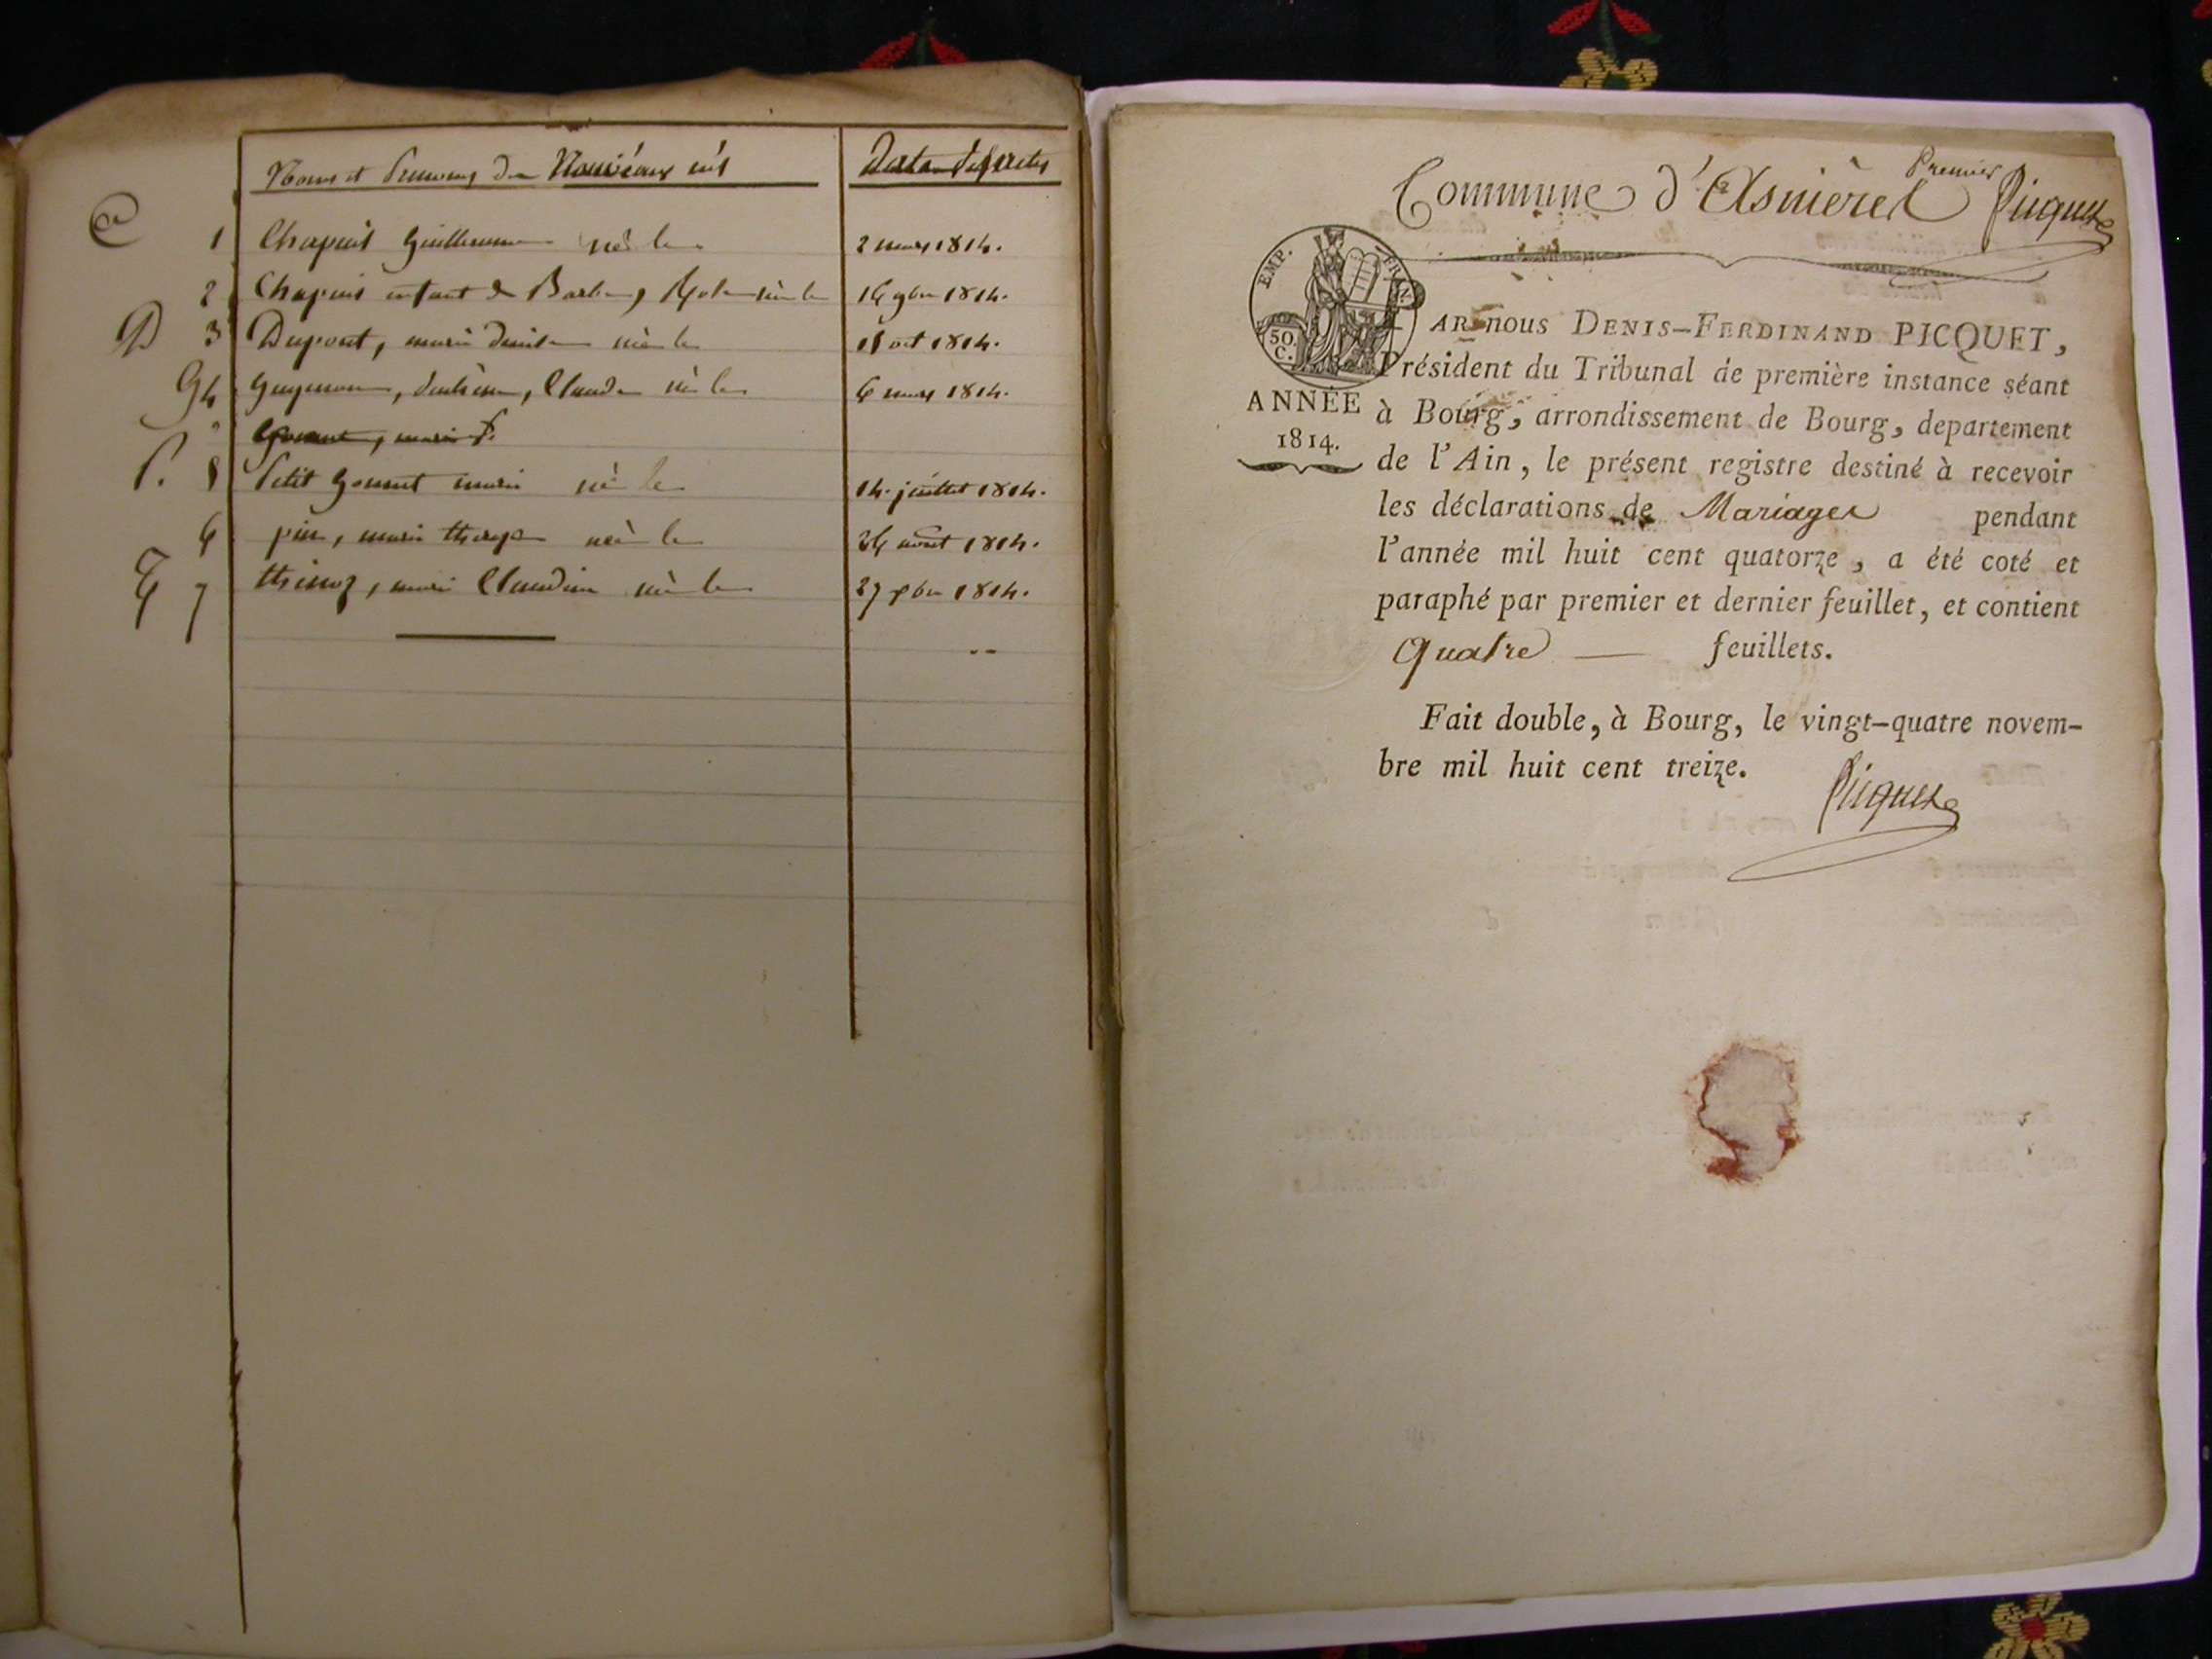 Noms et Prenoms des Nouvéaux nés
Date des actes
C
1 Chapuis Guillaume né le 2 mars 1814.
2 Chapuis enfant de né le 16 9bre 1814.
D 3 Dupont, marie denise née le
G 4 Claude né le 6 mars 1814.
marie f.
P. 5 Petit Gonnet marie né le 14. juillet 1814.
6 pin, marie therese née le 26 août 1814.
T 7 marie Claudine née le 27 1814.
Premier
Commune d'Asnieres Picquet
EMP. FRAN.
50. C.
ANNÉE
1814.
PAR nous DENIS-FERDINAND PICQUET,
Président du Tribunal de première instance séant
à Bourg, arrondissement de Bourg, departement
de l'Ain, le présent registre destiné à recevoir
les déclarations de Mariages pendant
l'année mil huit cent quatorze, a été coté et
paraphé par premier et dernier feuillet, et contient
Quatre — feuillets.
Fait double, à Bourg, le vingt-quatre novem-
bre mil huit cent treize.
Picquet